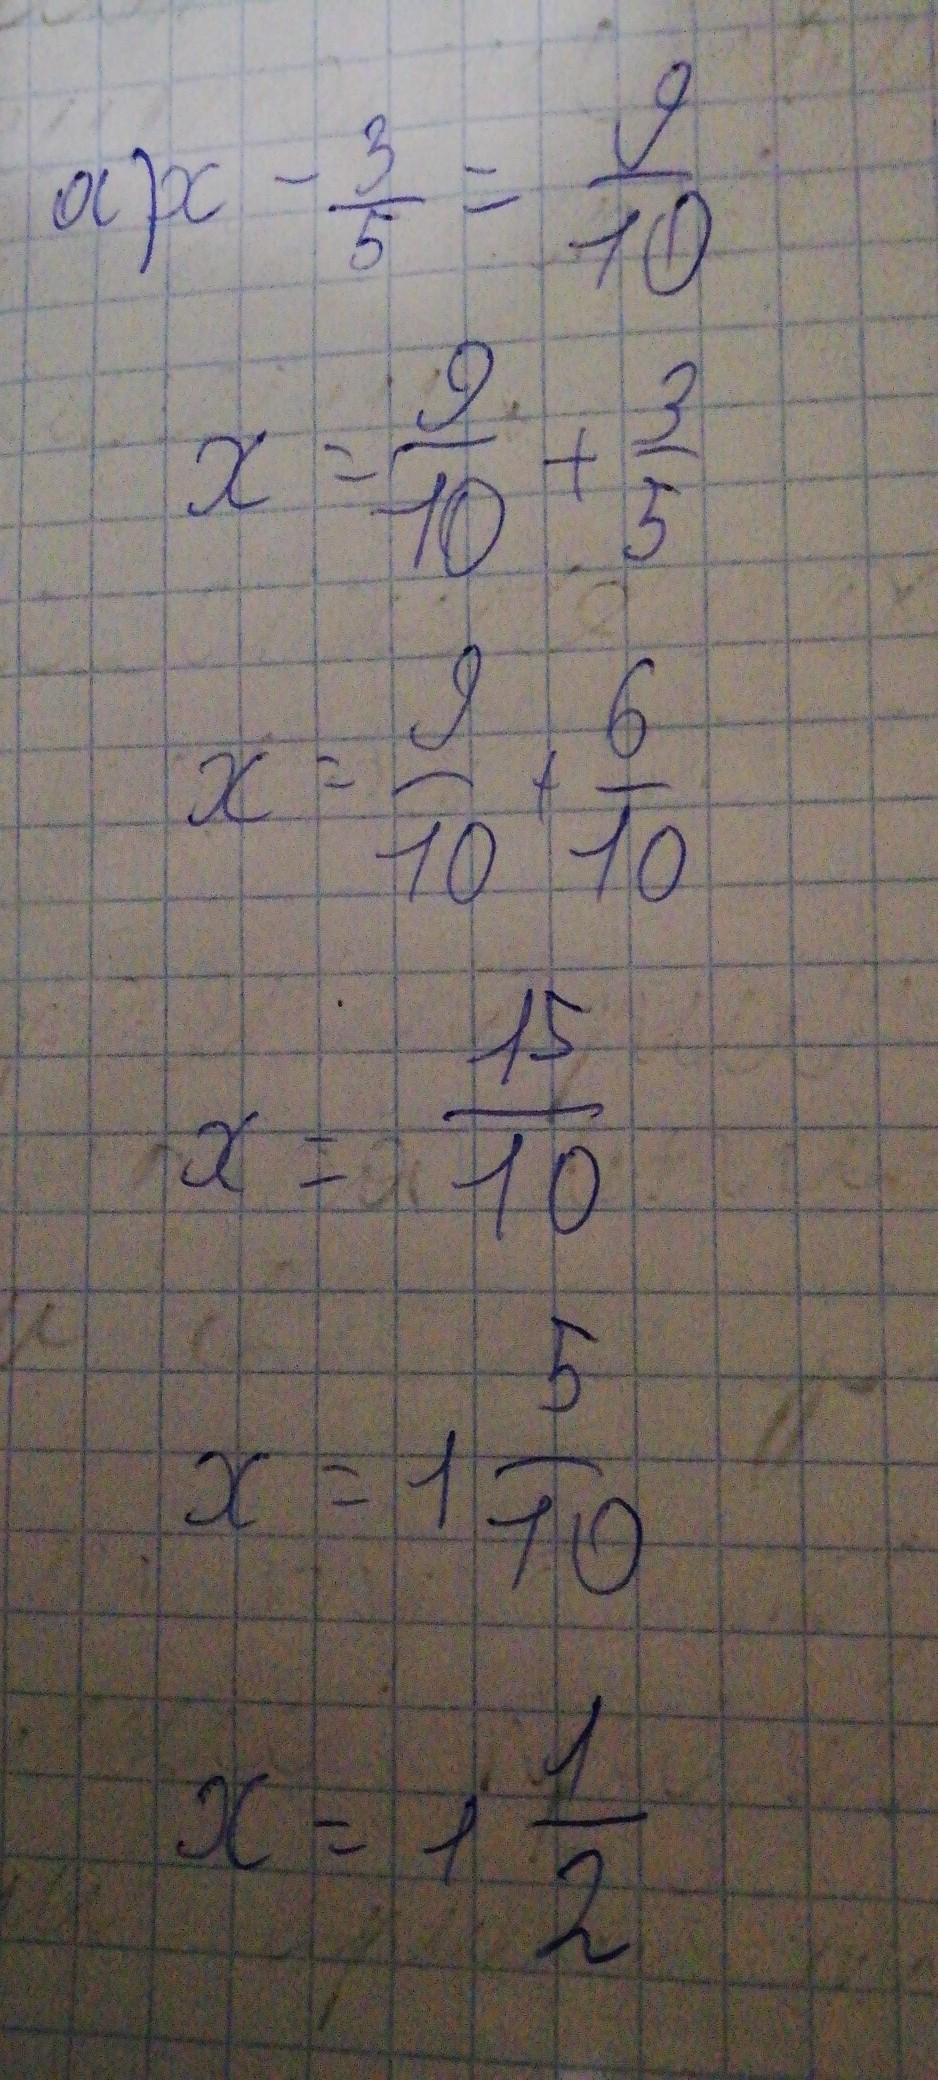 а) x - 3/5 = 9/10
x = 9/10 + 3/5
x = 9/10 + 6/10
x = 15/10
x = 1 5/10
x = 1 1/2